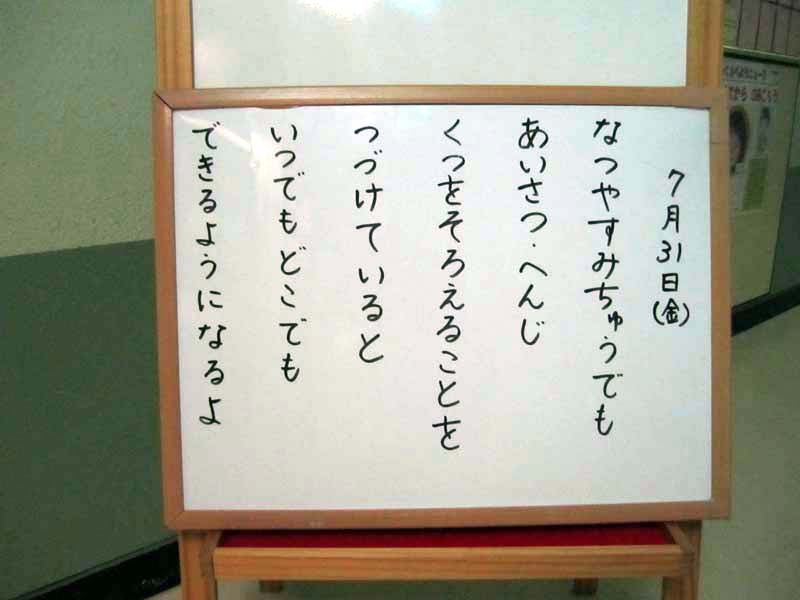 7月31日(金)
なつやすみちゅうでも
あいさつ・へんじ
くつをそろえることを
つづけていると
いつでもどこでも
できるようになるよ